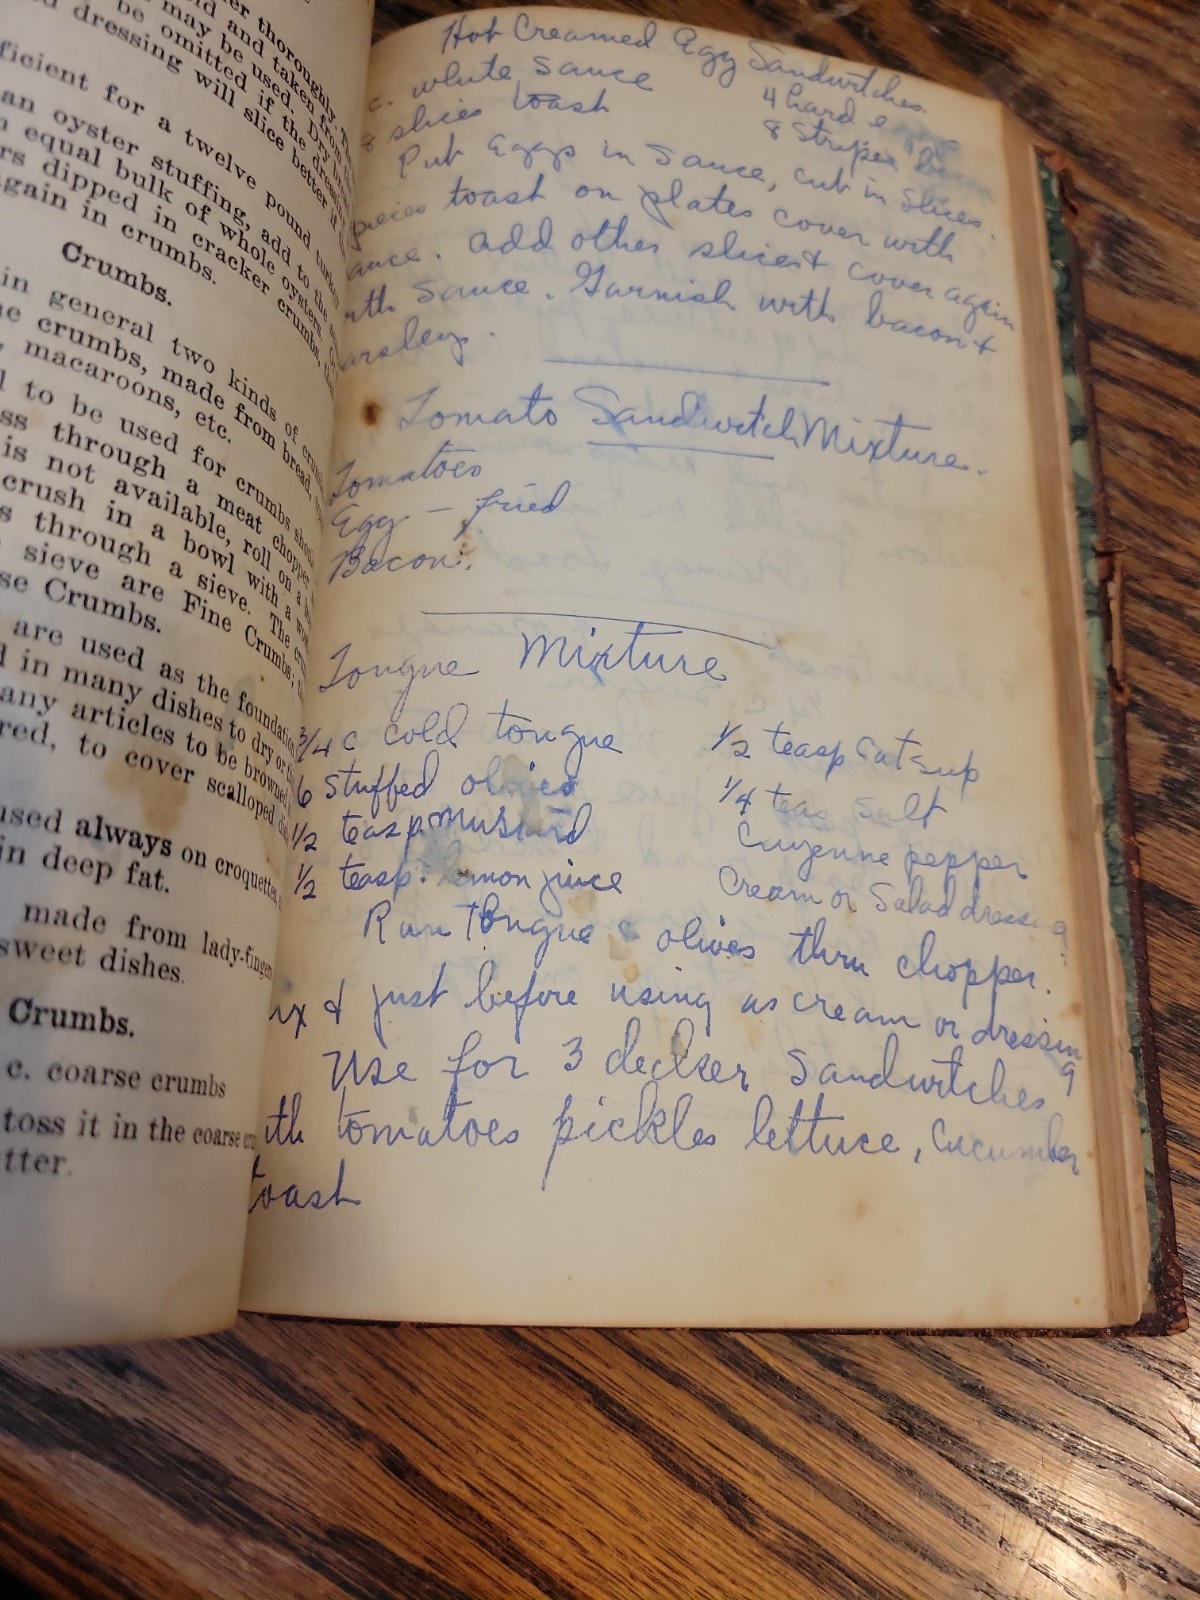 er thoroughly. The
old and taken from
may be used. Dry
be omitted if the dressing
d dressing will slice better if
ficient for a twelve pound turkey
an oyster stuffing, add to the
n equal bulk of whole oysters.
rs dipped in cracker crumbs,
gain in crumbs.
Crumbs.
in general two kinds of
ne crumbs, made from bread,
, macaroons, etc.
l to be used for crumbs
ss through a meat chopper
is not available, roll on a
crush in a bowl with a
s through a sieve. The
sieve are Fine Crumbs,
se Crumbs.
are used as the foundation
d in many dishes to dry or
any articles to be browned
red, to cover scalloped
used always on croquettes,
in deep fat.
made from lady-finger
sweet dishes.
Crumbs.
c. coarse crumbs
toss it in the coarse
tter.
Hot Creamed Egg Sandwitches.
c. white sauce 4 hard
8 slices toast 8 Stripes
Put Eggs in sauce, cut in slices.
pieces toast on plates cover with
auce. add other slice & cover again
ith sauce. Garnish with bacon &
arsley.
Tomato Sandwitch Mixture.
Tomatoes
Egg - fried
Bacon.
Tongue Mixture
3/4 c cold tongue 1/2 teasp catsup
6 stuffed olives 1/4 teas salt
1/2 teasp mustard Cayenne pepper
1/2 teasp. lemon juice Cream or Salad dressing
Run Tongue & olives thru chopper.
ix & just before using as cream or dressing
Use for 3 decker Sandwitches
ith tomatoes pickles lettuce, Cucumber
toast